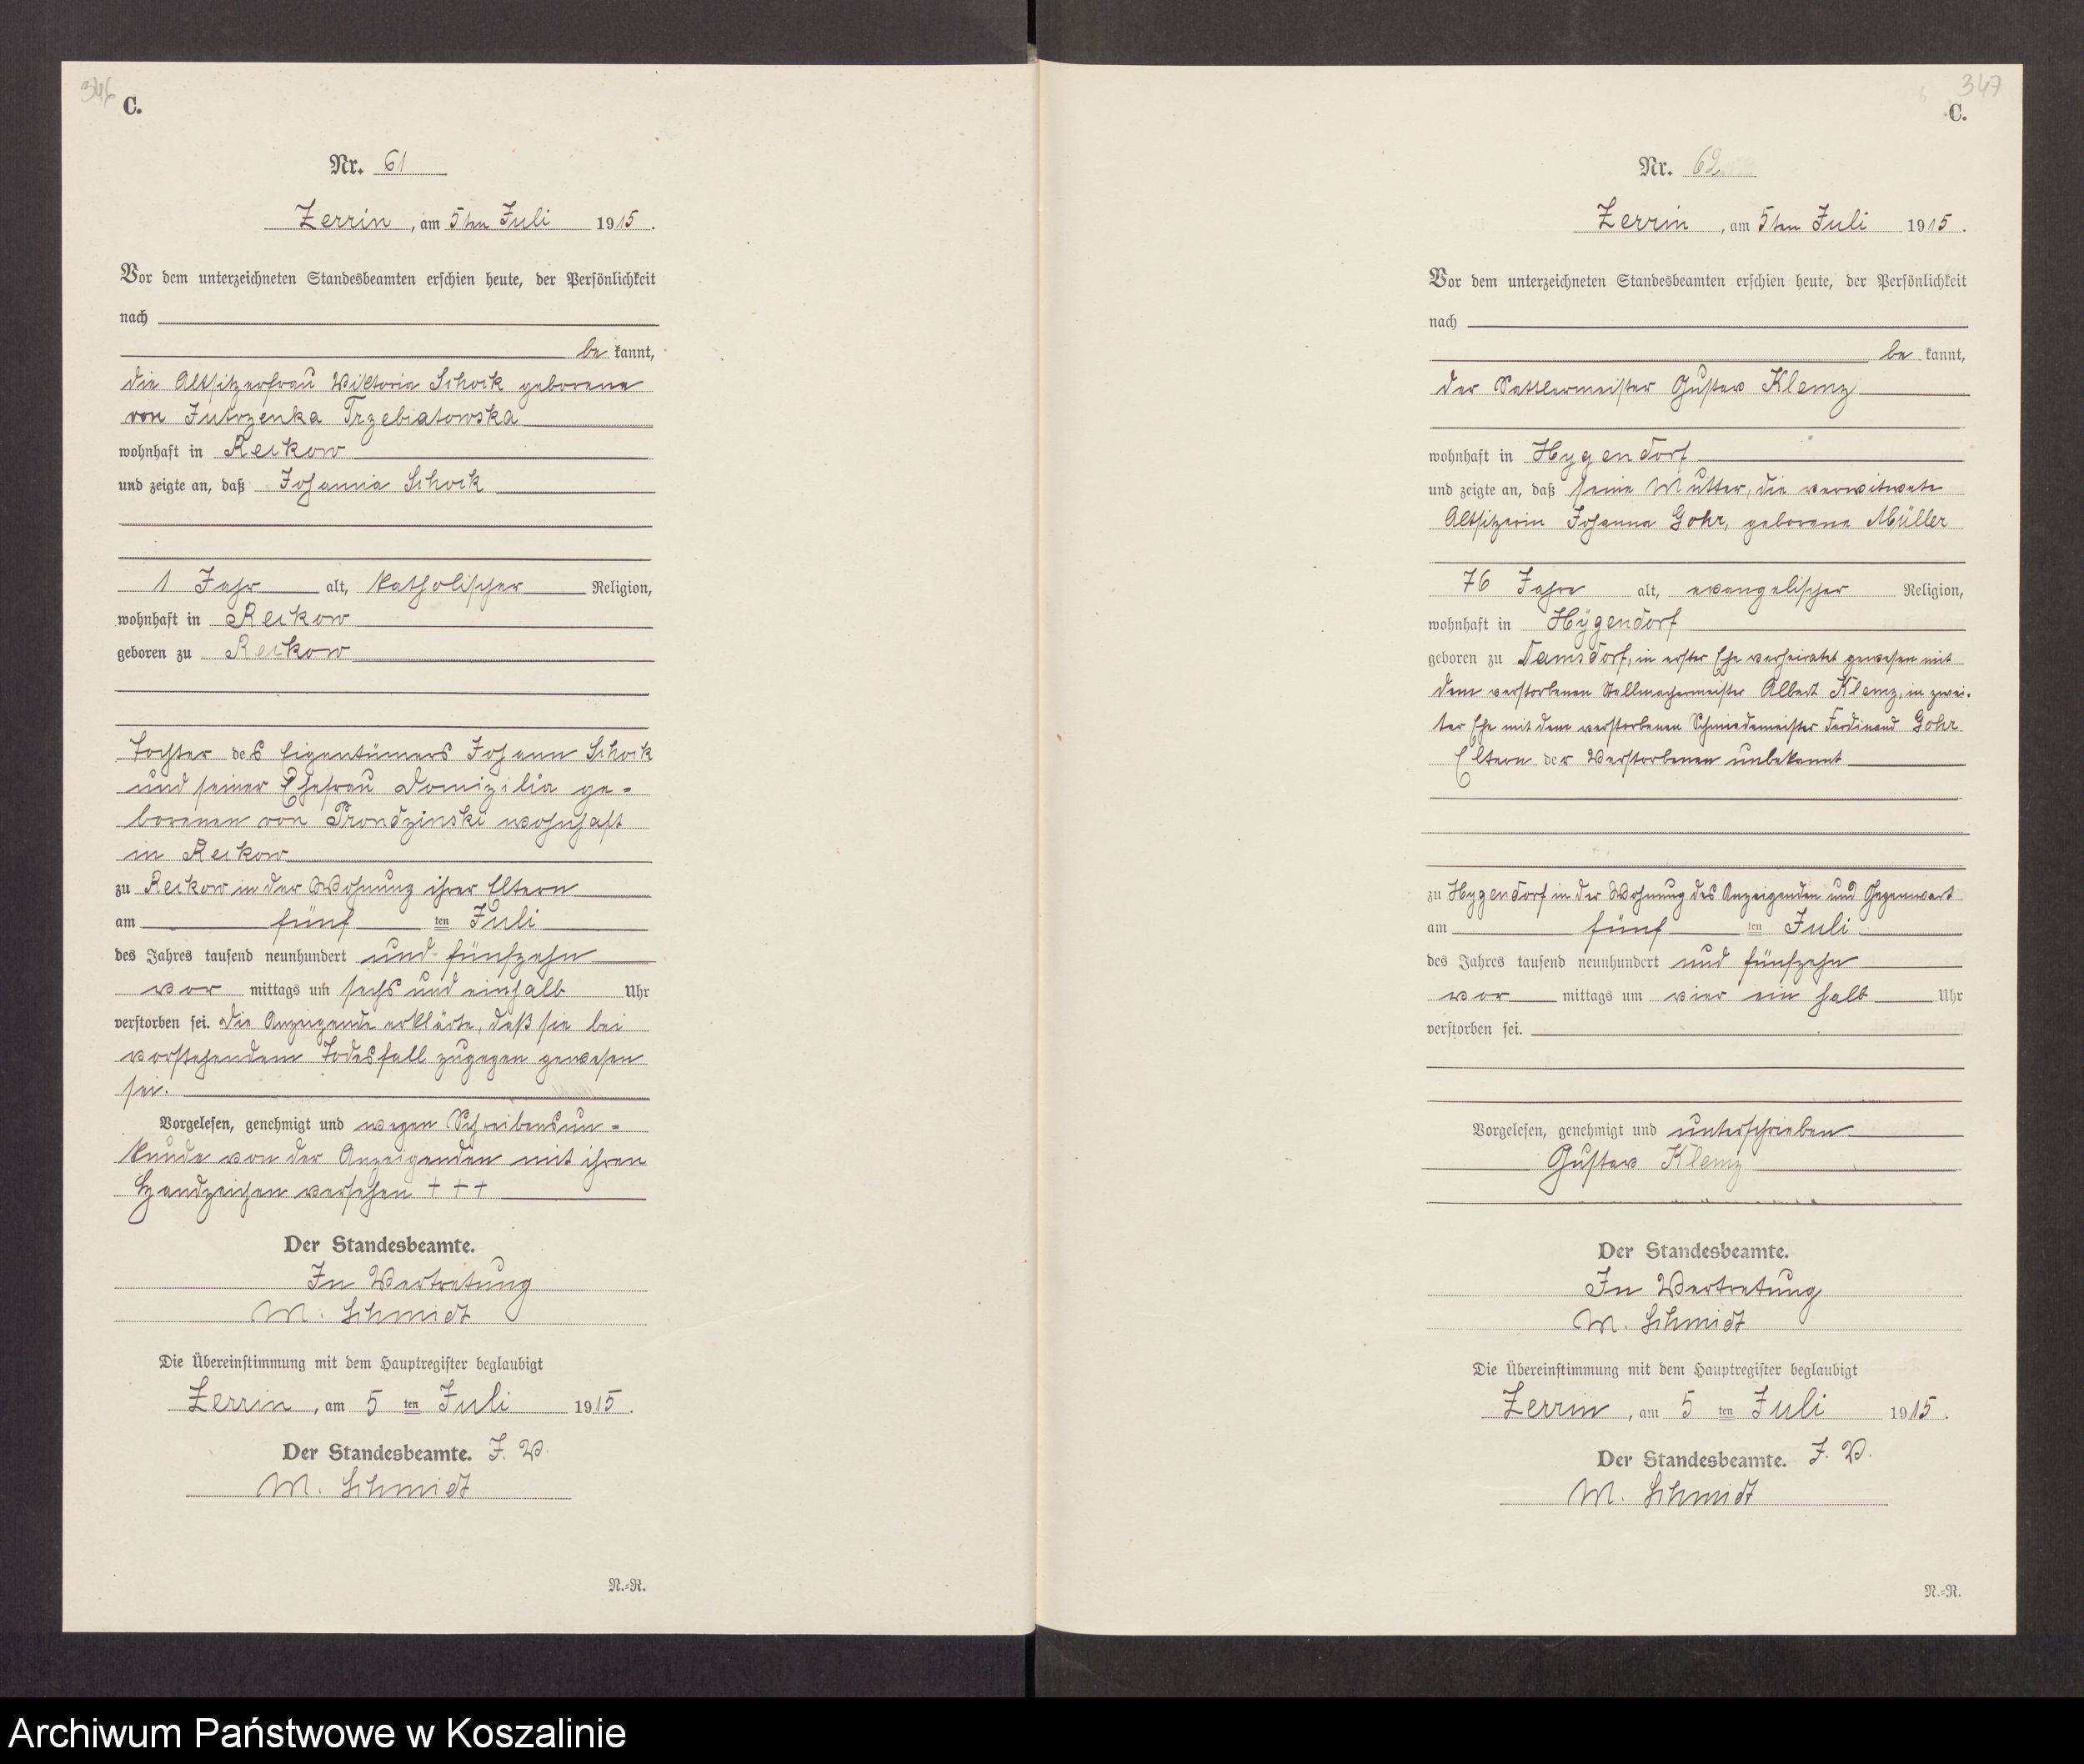 346
C.
Nr. 61
Zerrin, am 5ten Juli 1915.
Vor dem unterzeichneten Standesbeamten erschien heute, der Persönlichkeit
nach
be kannt,
die Altsitzerfrau Wiktoria Schock geborene
von Jutrzenka Trzebiatowska
wohnhaft in Reckow
und zeigte an, daß Johanna Schock
1 Jahr alt, katholischer Religion,
wohnhaft in Reckow
geboren zu Reckow
Tochter des Eigentümers Johann Schock
und seiner Ehefrau Domizilia ge-
borenen von Prondzinski wohnhaft
in Reckow
zu Reckow in der Wohnung ihrer Eltern
am fünf ten Juli
des Jahres tausend neunhundert und fünfzehn
vor mittags um sechs und einhalb Uhr
verstorben sei. Die Anzeigende erklärte, daß sie bei
vorstehendem Todesfall zugegen gewesen
sei.
Vorgelesen, genehmigt und wegen Schreibensun-
kunde von der Anzeigenden mit ihren
Handzeichen versehen + + +
Der Standesbeamte.
In Vertretung
M. Schmidt
Die Übereinstimmung mit dem Hauptregister beglaubigt
Zerrin, am 5 ten Juli 1915.
Der Standesbeamte. J. V.
M. Schmidt
N.=R.
347
C.
Nr. 62
Zerrin, am 5ten Juli 1915.
Vor dem unterzeichneten Standesbeamten erschien heute, der Persönlichkeit
nach
be kannt,
der Sattlermeister Gustav Klemz
wohnhaft in Hygendorf
und zeigte an, daß seine Mutter, die verwitwete
Altsitzerin Johanna Gohr, geborene Müller
76 Jahre alt, evangelischer Religion,
wohnhaft in Hygendorf
geboren zu Damsdorf, in erster Ehe verheiratet gewesen mit
dem verstorbenen Stellmachermeister Albert Klemz, in zwei-
ter Ehe mit dem verstorbenen Schmiedemeister Ferdinand Gohr
Eltern der Verstorbenen unbekannt
zu Hygendorf in der Wohnung des Anzeigenden und Gegenwart
am fünf ten Juli
des Jahres tausend neunhundert und fünfzehn
vor mittags um vier ein halb Uhr
verstorben sei.
Vorgelesen, genehmigt und unterschrieben
Gustav Klemz
Der Standesbeamte.
In Vertretung
M. Schmidt
Die Übereinstimmung mit dem Hauptregister beglaubigt
Zerrin, am 5 ten Juli 1915.
Der Standesbeamte. J. V.
M. Schmidt
N.=R.
Archiwum Państwowe w Koszalinie